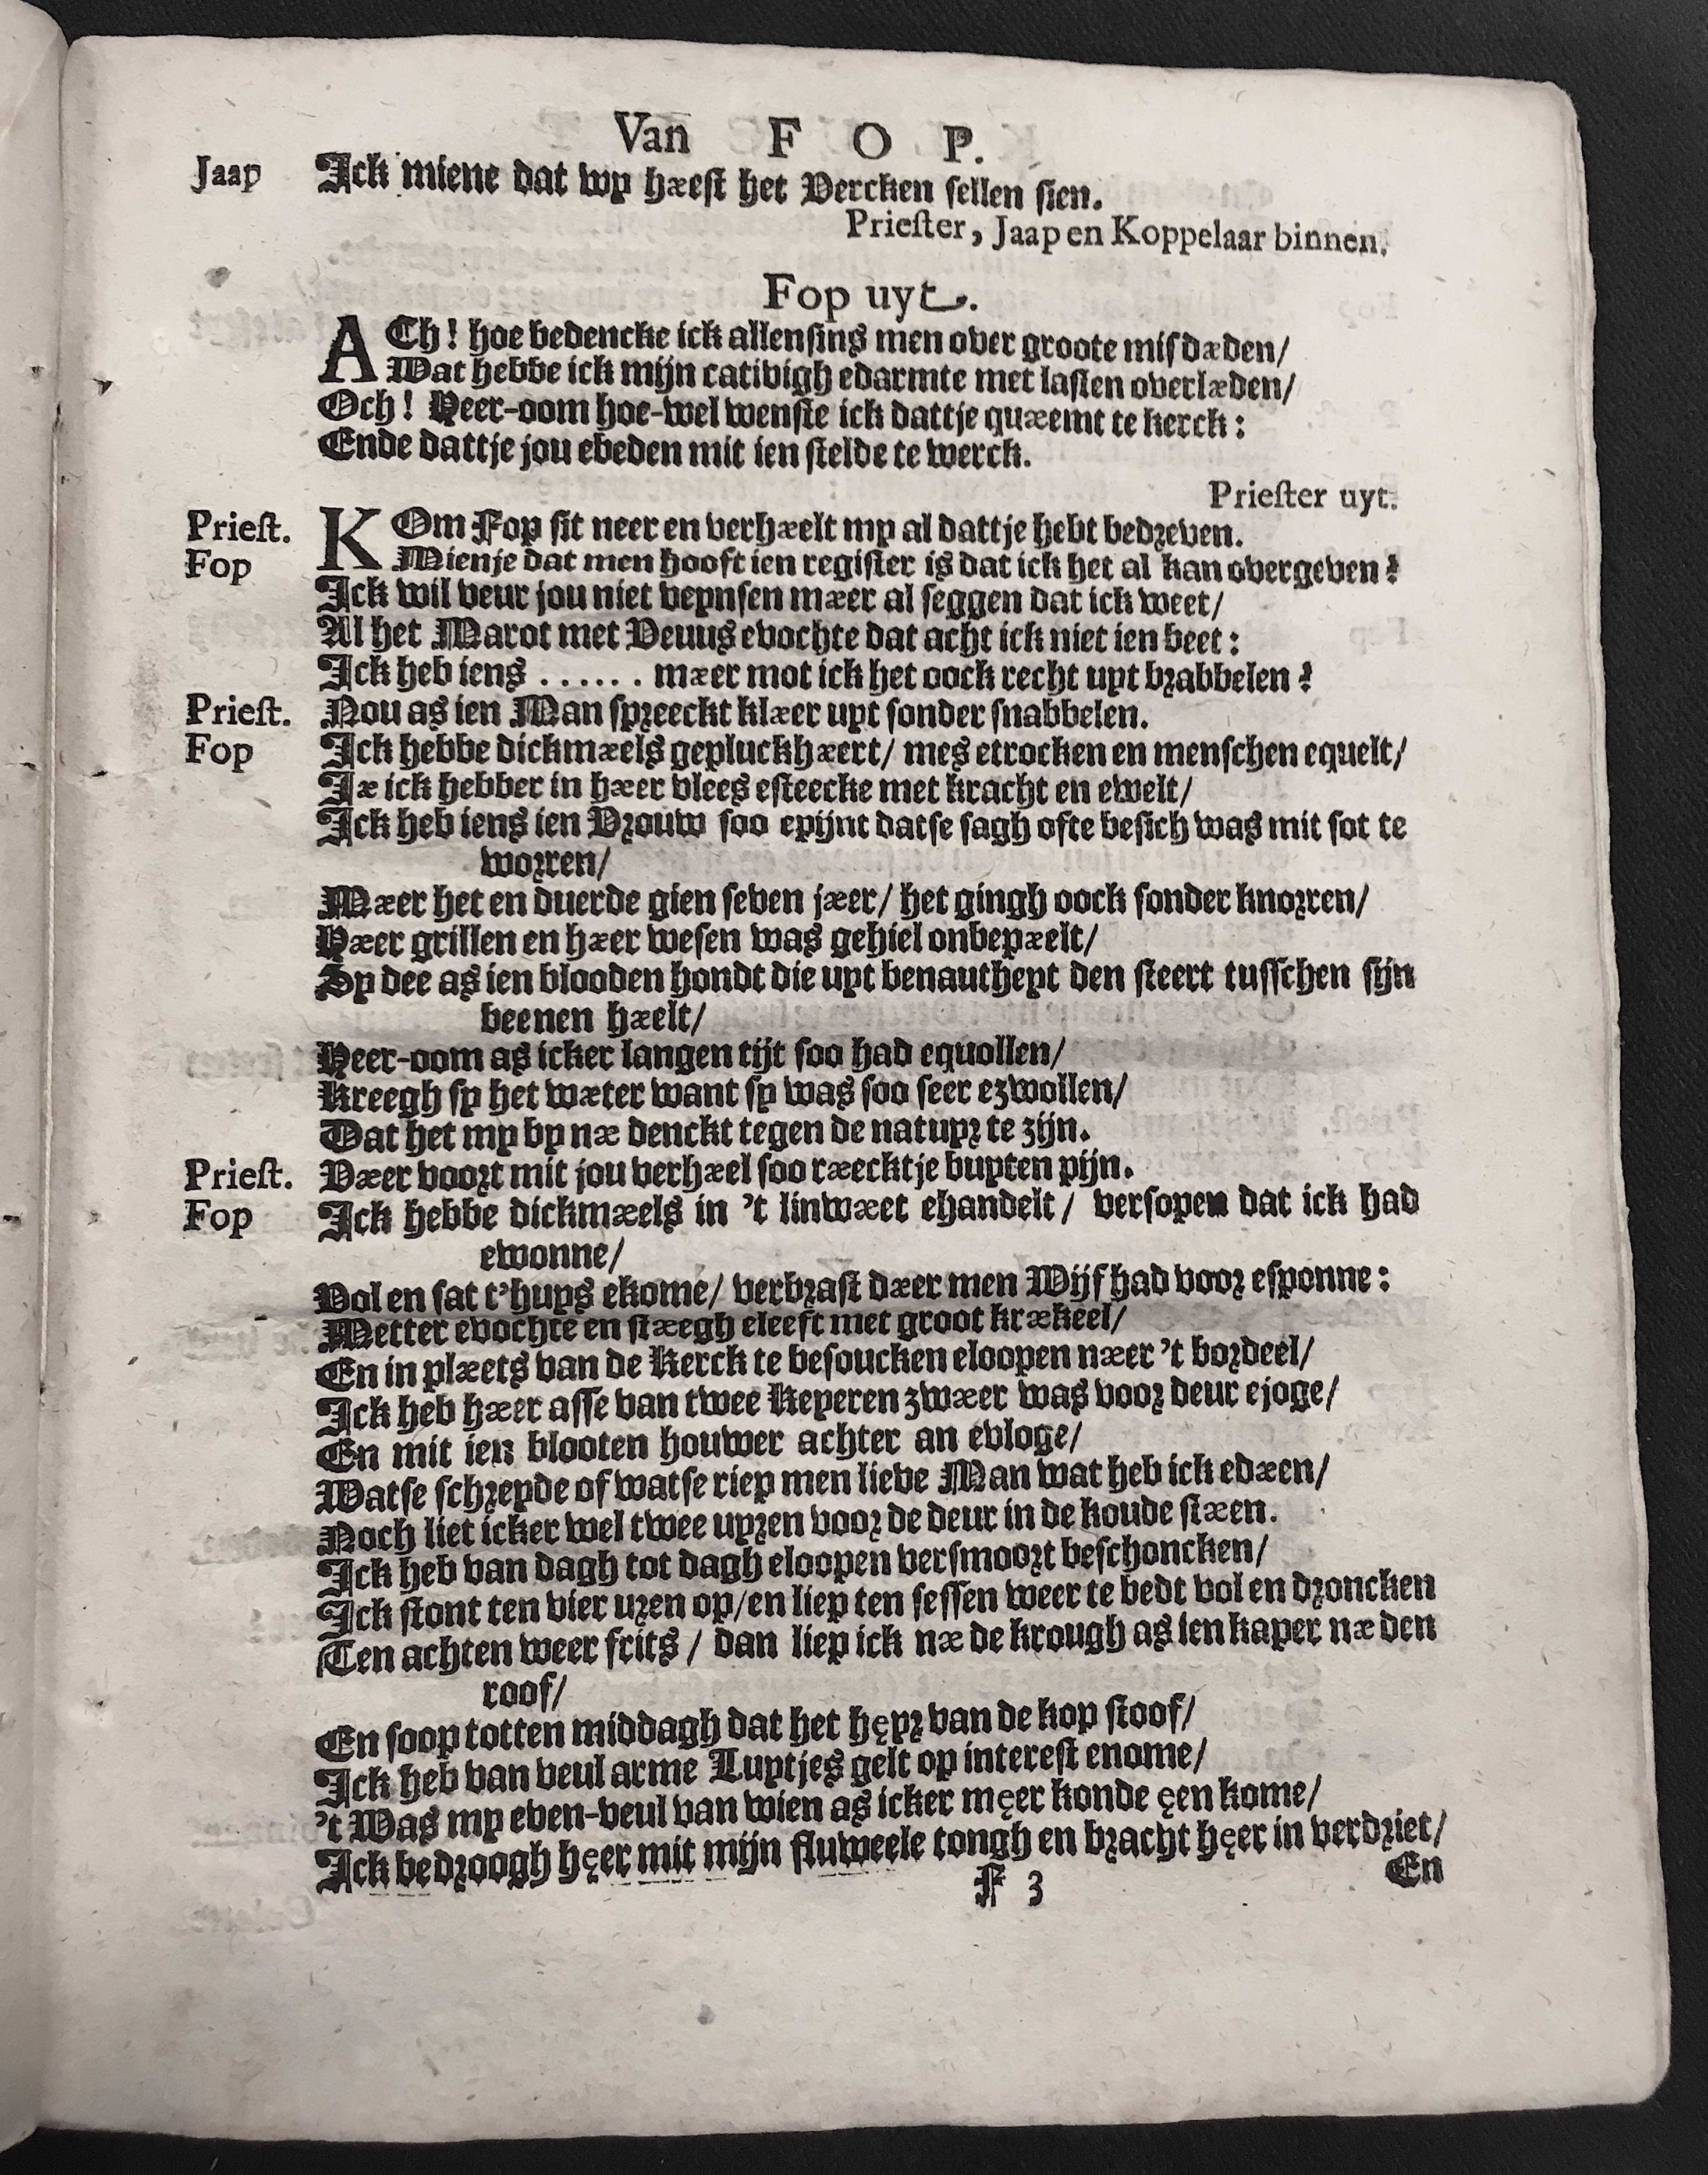 Van F O P.
Jaap Ick miene dat wy hæest het Vercken sellen sien.
Priester, Jaap en Koppelaar binnen.
Fop uyt.
ACh! hoe bedencke ick allensins men over groote misdæden/
Wat hebbe ick mijn cativigh edarmte met lasten overlæden/
Och! Heer-oom hoe-wel wenste ick dattje quæemt te kerck:
Ende dattje jou ebeden mit ien stelde te werck.
Priester uyt.
Priest. KOm Fop sit neer en verhæelt my al dattje hebt bedreven.
Fop Mienje dat men hooft ien register is dat ick het al kan overgeven?
Ick wil veur jou niet veynsen mæer al seggen dat ick weet/
Al het Marot met Venus evochte dat acht ick niet ien beet:
Ick heb iens ...... mæer mot ick het oock recht uyt brabbelen?
Priest. Nou as ien Man spreeckt klæer uyt sonder snabbelen.
Fop Ick hebbe dickmæels gepluckhæert/ mes etrocken en menschen equelt/
Jæ ick hebber in hæer vlees esteecke met kracht en ewelt/
Ick heb iens ien Vrouw soo epijnt datse sagh ofte besich was mit sot te
worren/
Mæer het en duerde gien seven jæer/ het gingh oock sonder knorren/
Hæer grillen en hæer wesen was gehiel onbepæelt/
Sy dee as ien blooden hondt die uyt benautheyt den steert tusschen sijn
beenen hæelt/
Heer-oom as icker langen tijt soo had equollen/
Kreegh sy het wæter want sy was soo seer ezwollen/
Dat het my by næ denckt tegen de natuyr te zijn.
Priest. Væer voort mit jou verhæel soo ræecktje buyten pijn.
Fop Ick hebbe dickmæels in 't linwæet ehandelt/ versopen dat ick had
ewonne/
Vol en sat t'huys ekome/ verbrast dæer men Wijf had voor esponne:
Metter evochte en stæegh eleeft met groot krækeel/
En in plæets van de Kerck te besoucken eloopen næer 't bordeel/
Ick heb hæer asse van twee Keyeren zwæer was voor deur ejoge/
En mit ien blooten houwer achter an evloge/
Watse schreyde of watse riep men lieve Man wat heb ick edæen/
Noch liet icker wel twee uyren voor de deur in de koude stæen.
Ick heb van dagh tot dagh eloopen versmoort beschoncken/
Ick stont ten vier uren op/en liep ten sessen weer te bedt vol en droncken
Ten achten weer frits / dan liep ick næ de krough as ien kaper næ den
roof/
En soop totten middagh dat het hęyr van de kop stoof/
Ick heb van veul arme Luytjes gelt op interest enome/
't Was my even-veul van wien as icker męer konde ęen kome/
Ick bedroogh hęer mit mijn fluweele tongh en bracht hęer in verdriet/
F 3 En